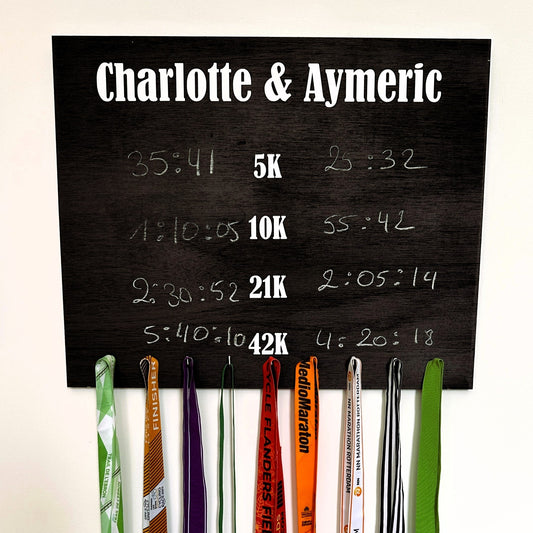 Charlotte & Aymeric
35:41 5K 25:32
1:10:05 10K 55:42
2:30:52 21K 2:05:14
5:40:10 42K 4:20:18
FINISHER
CYCLE FLANDERS FIE
MedioMaraton
NN MARATHON ROTTERDAM